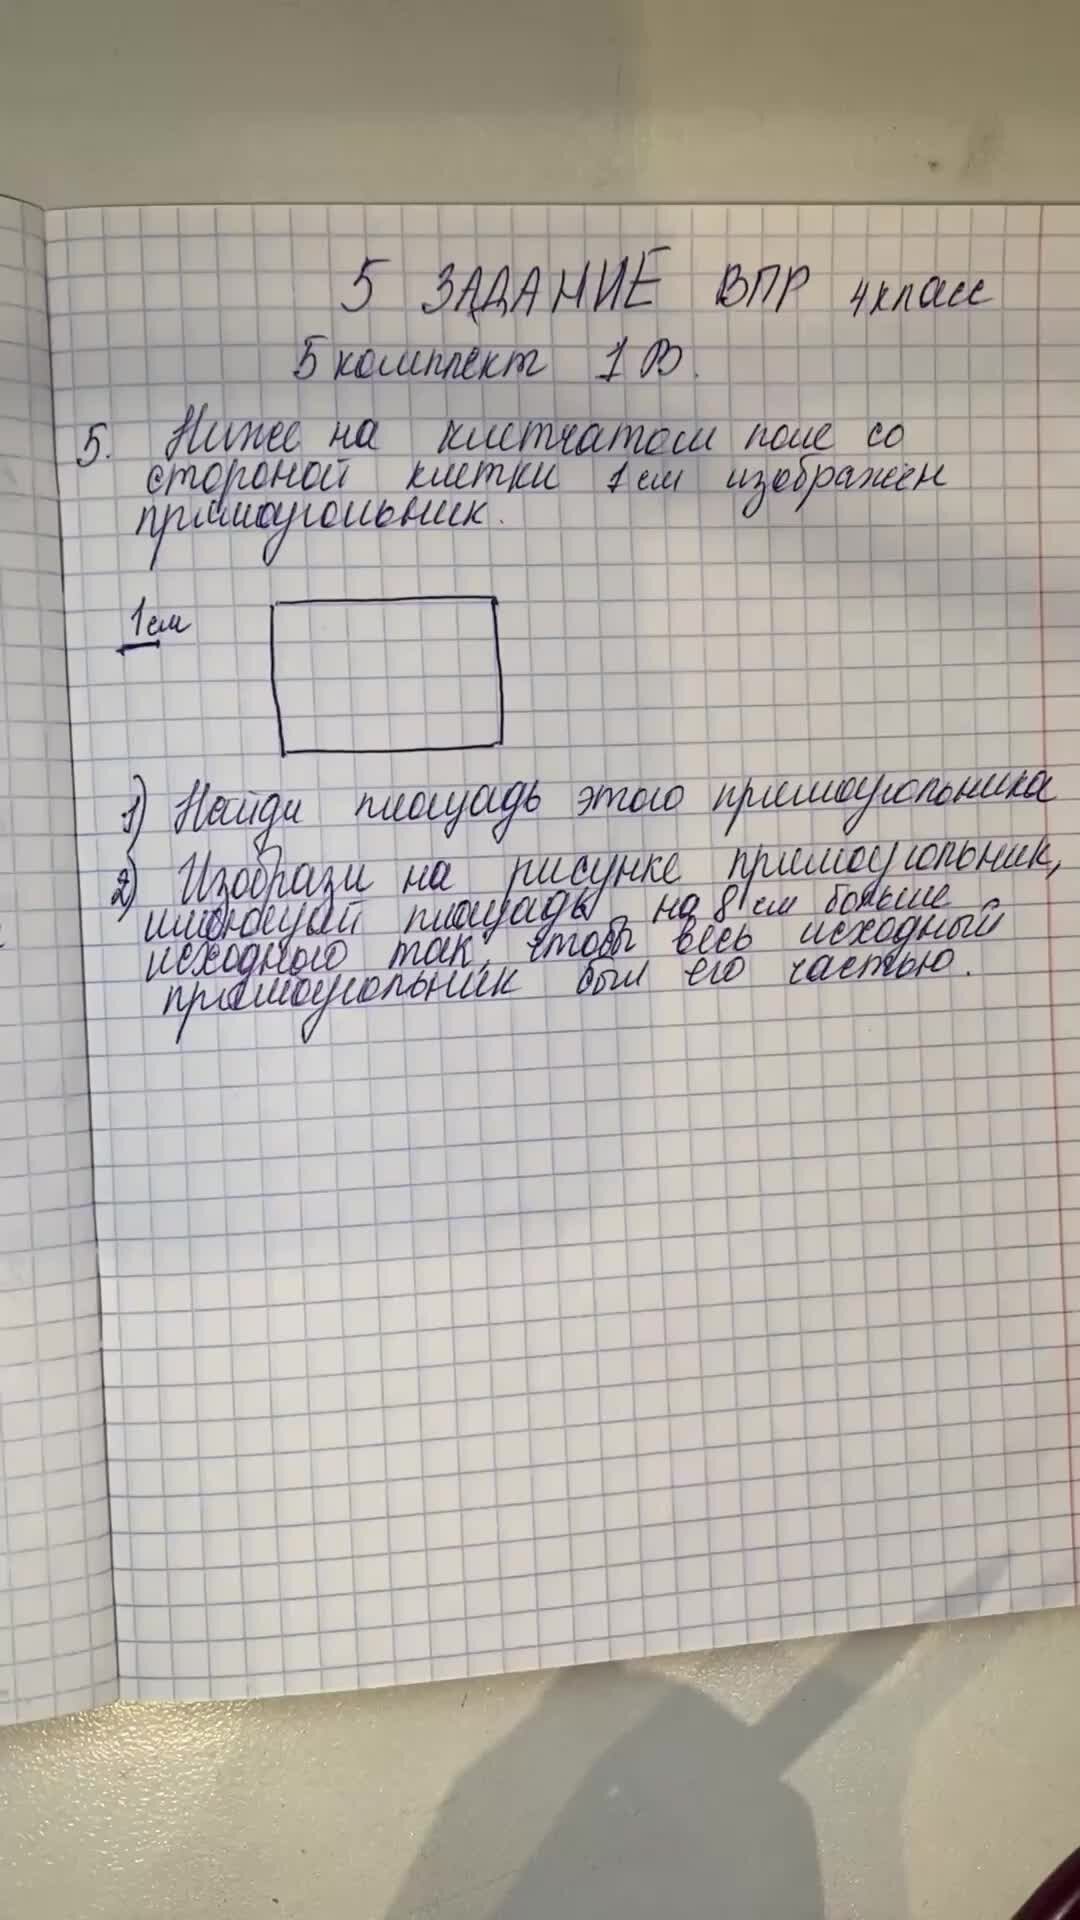 5 ЗАДАНИЕ ВПР 4 класс
5 комплект 1 В.
5. Ниже на клетчатом поле со
стороной клетки 1 см изображен
прямоугольник.
1 см
1) Найди площадь этого прямоугольника
2) Изобрази на рисунке прямоугольник,
имеющий площадь на 8 см больше
исходного так, чтобы весь исходный
прямоугольник был его частью.